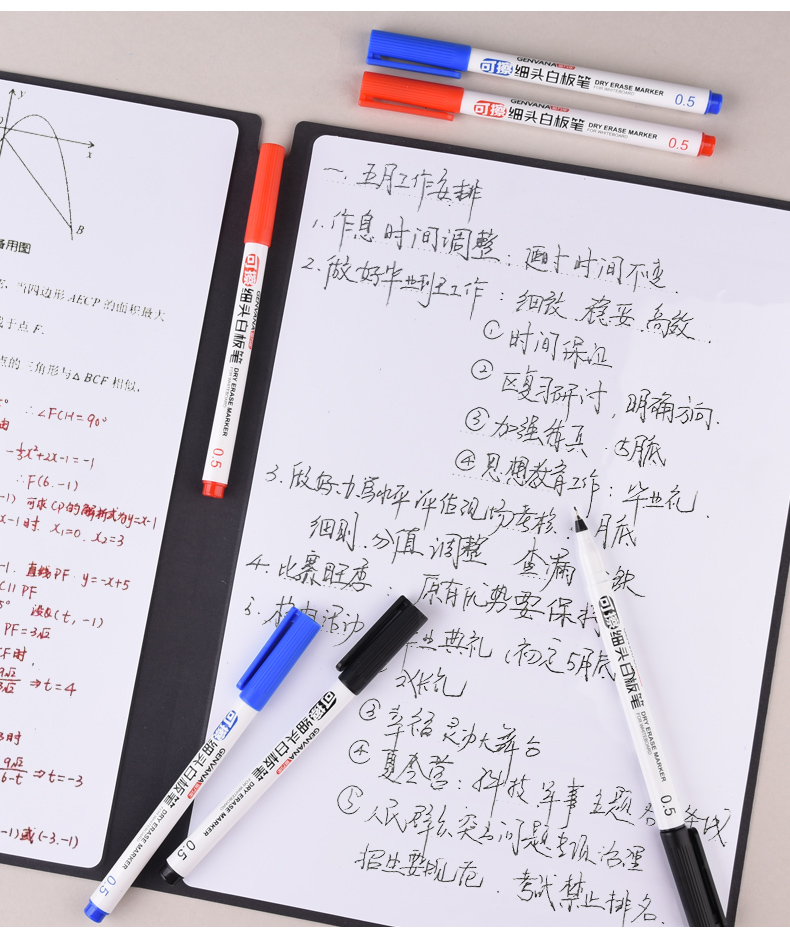 GENVANA
可擦细头白板笔 DRY ERASE MARKER
FOR WHITEBOARD
0.5
GENVANA
可擦细头白板笔 DRY ERASE MARKER
FOR WHITEBOARD
0.5
y
x
B
备用图
当四边形 AECP 的面积最大
于点 F.
点的三角形与△BCF 相似,
∴∠FCH=90°
由
-⅓x²+2x-1=-1
∴F(6,-1)
-1) 可求CP的解析式为y=x-1
x-1时, x₁=0, x₂=3
-1, 直线PF: y=-x+5
C∥PF
5° 设Q(t,-1)
PF=3√2
CF时,
⇒t=4
3时
9√2/6-t ⇒t=-3
-1)或(-3,-1)
可擦细头白板笔
GENVANA
DRY ERASE MARKER
0.5
一、五月工作安排
1.作息时间调整:时间不变.
2.做好毕业班工作:细致 稳妥 高效.
①时间保证
②区复习研讨,明确方向.
③加强练兵 5月底
④思想教育工作:毕业礼.
3.做好评估现场考核 月底
细则,分值 调整 查漏 缺
4. 比赛旺季: 原有优势要保持
5. 活动 业典礼(初定5月底
③幸福灵动大舞台
④夏令营:科技 军事主题
⑤人民群众突出问题专项治理
招生要规范. 考试禁止排名.
可擦细头白板笔
GENVANA
DRY ERASE MARKER
0.5
可擦细头白板笔
GENVANA
DRY ERASE MARKER
0.5
可擦细头白板笔
DRY ERASE MARKER
0.5